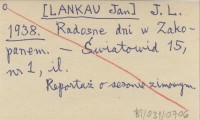 [LANKAU Jan] J. L.
1938. Radosne dni w Zako-
panem. — Światowid 15,
nr 1, il.
Reportaż o sezonie zimowym.